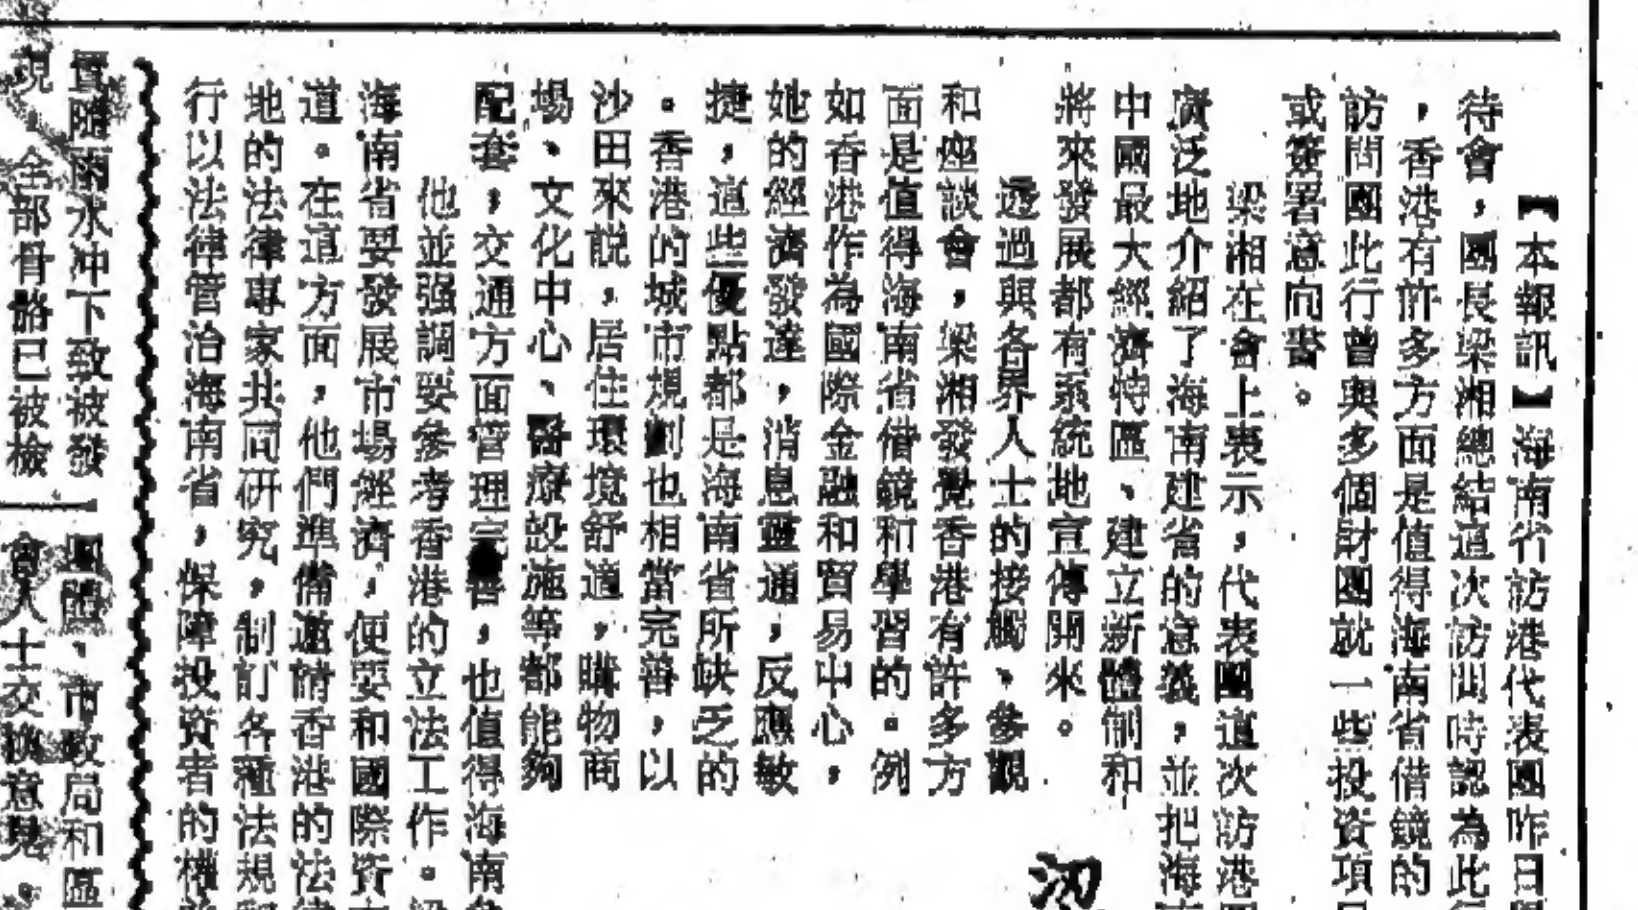 【本報訊】海南省訪港代表團昨日
待會，團長梁湘總結這次訪問時認為此
，香港有許多方面是值得海南省借鏡的
訪問團此行曾與多個財團就一些投資項
或簽署意向書。
梁湘在會上表示，代表團這次訪港
廣泛地介紹了海南建省的意義，並把海
中國最大經濟特區、建立新體制和
將來發展都有系統地宣傳開來。
透過與各界人士的接觸、參觀
和座談會，梁湘發覺香港有許多方
面是值得海南省借鏡和學習的。例
如香港作為國際金融和貿易中心，
她的經濟發達，消息靈通，反應敏
捷，這些優點都是海南省所缺乏的
。香港的城市規劃也相當完善，以
沙田來說，居住環境舒適，購物商
場、文化中心、醫療設施等都能夠
配套，交通方面管理完善，也值得海南
他並强調要參考香港的立法工作。
海南省要發展市場經濟，便要和國際資
道。在這方面，他們準備邀請香港的法
地的法律專家共同研究，制訂各種法規
行以法律管治海南省，保障投資者的權
沏
實隨雨水冲下致被發
現，全部骨骼已被檢
團體、市政局和區
會人士交換意見。